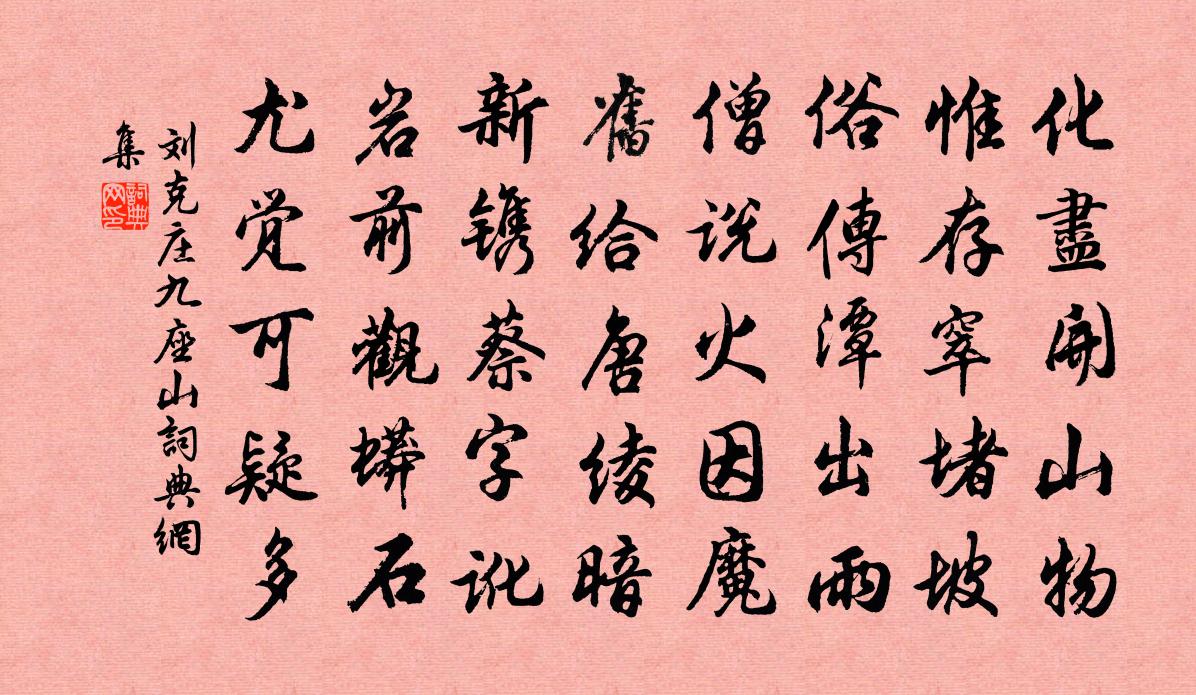 化盡開山物
惟存窣堵坡
俗傳潭出雨
僧说火因魔
舊给唐绫暗
新镌蔡字讹
岩前觀蟒石
尤觉可疑多
刘克庄九座山詞典網
集
詞典
网印